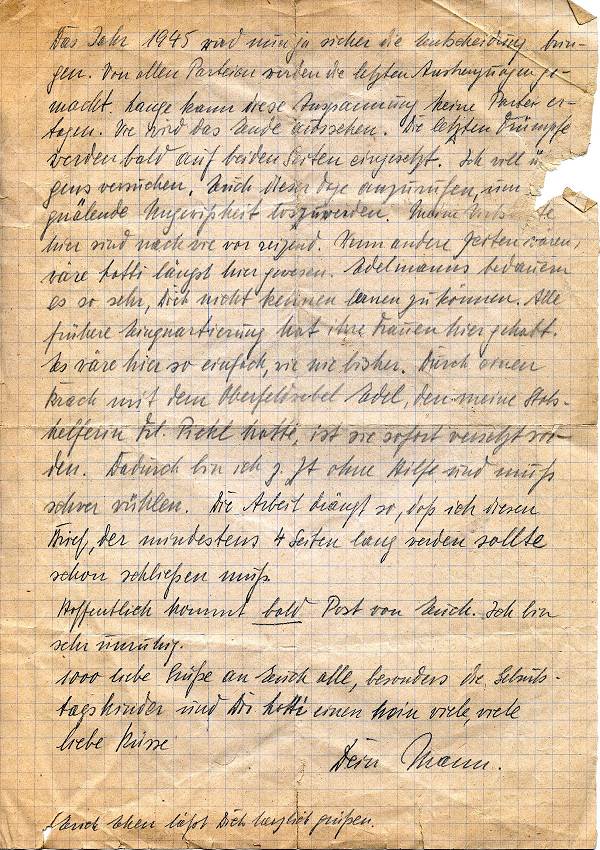 Das Jahr 1945 wird nun ja sicher die Entscheidung brin-
gen. Von allen Parteien werden die letzten Anstrengungen ge-
macht. Lange kann diese Anspannung keine Partei er-
tragen. Wie wird das Ende aussehen. Die letzten Trümpfe
werden bald auf beiden Seiten eingesetzt. Ich will
gens versuchen, Euch dieser Tage anzurufen, um
quälende Ungewißheit loszuwerden. Meine
hier sind nach wie vor reizend. Wenn andere Zeiten wären,
wäre Lotti längst hier gewesen. Edelmanns bedauern
es so sehr, Dich nicht kennen lernen zu können. Alle
frühere Einquartierung hat ihre Frauen hier gehabt.
Es wäre hier so einfach, wie nie bisher. Durch einen
Krach mit dem Oberfeldwebel Edel, den meine Stabs-
helferin Frl. Pickl hatte, ist sie sofort versetzt wor-
den. Dadurch bin ich z. Zt ohne Hilfe und muß
schwer wühlen. Die Arbeit drängt so, daß ich diesen
Brief, der mindestens 4 Seiten lang werden sollte
schon schließen muß.
Hoffentlich kommt bald Post von Euch. Ich bin
sehr unruhig.
1000 liebe Grüße an Euch alle, besonders die Geburts-
tagskinder und Dir Lotti einen viele, viele
liebe Küsse
Dein Mann.
läßt Dich herzlich grüßen.